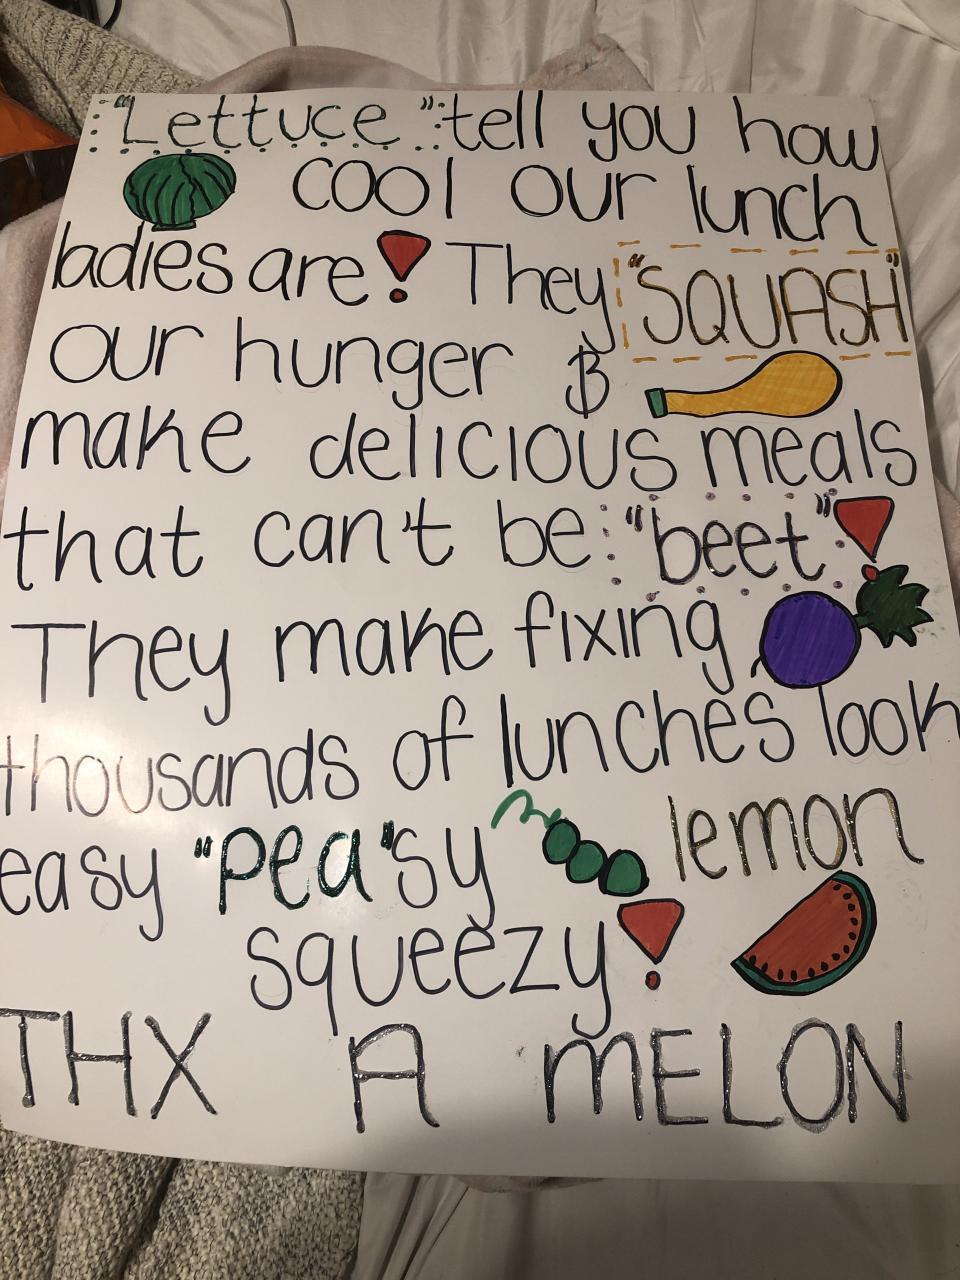 "Lettuce" tell you how
cool our lunch
ladies are! They "SQUASH"
our hunger &
make delicious meals
that can't be "beet"!
They make fixing
thousands of lunches look
easy "pea"sy lemon
squeezy!
THX A MELON